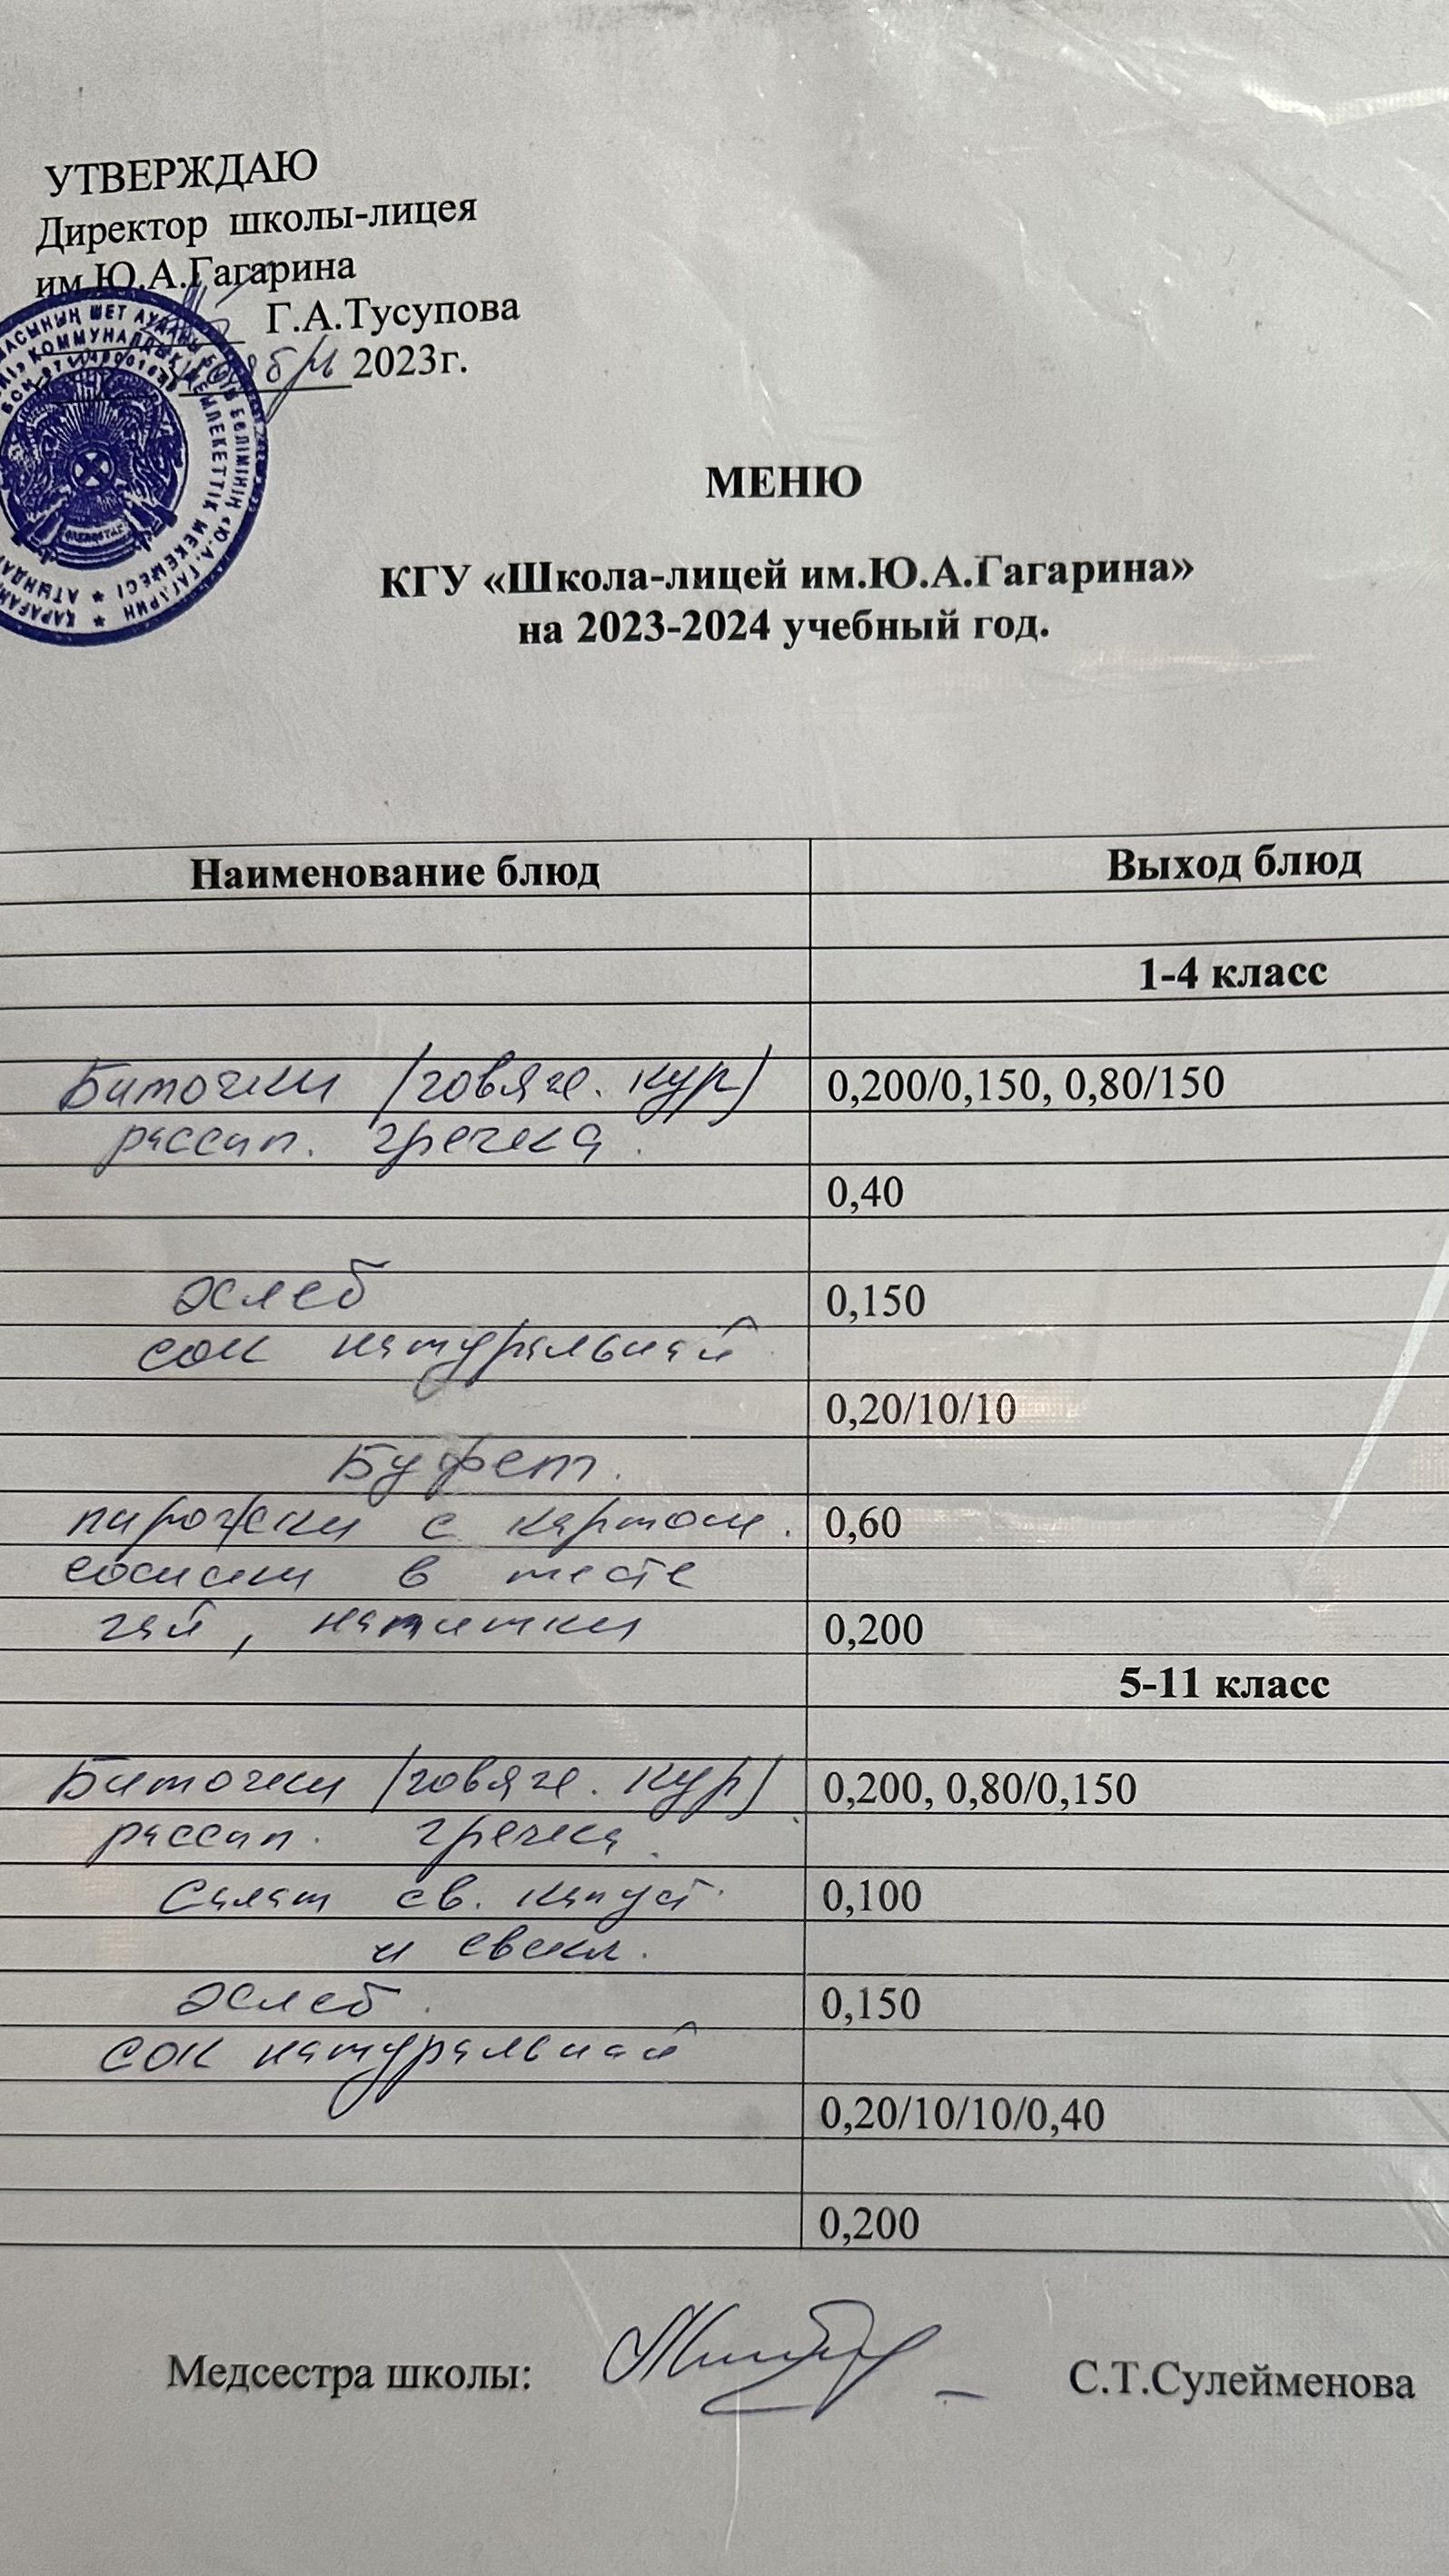 УТВЕРЖДАЮ
Директор школы-лицея
им.Ю.А.Гагарина
Г.А.Тусупова
2023г.
МЕНЮ
КГУ «Школа-лицей им.Ю.А.Гагарина»
на 2023-2024 учебный год.
Наименование блюд Выход блюд
1-4 класс
Биточки (говяж. кур) 0,200/0,150, 0,80/150
рассып. гречка.
0,40
хлеб 0,150
сок натуральный
0,20/10/10
Буфет.
пирожки с картош. 0,60
сосиски в тесте
чай, напитки 0,200
5-11 класс
Биточки (говяж. кур) 0,200, 0,80/0,150
рассып. гречка.
Салат св. капуст. 0,100
и свекл.
хлеб. 0,150
сок натуральный
0,20/10/10/0,40
0,200
Медсестра школы: С.Т.Сулейменова